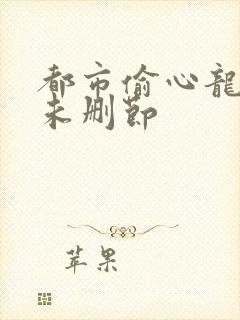 都市偷心龍
未删節
苹果